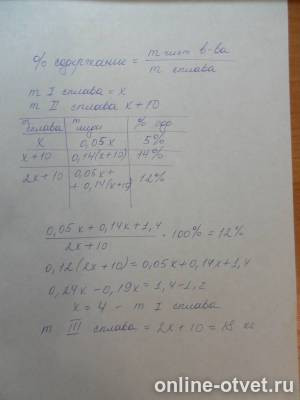 % содержание = m чист в-ва
m сплава
m I сплава = x
m II сплава x + 10
m сплава | m меди | % сод
x | 0,05x | 5%
x+10 | 0,14(x+10) | 14%
2x+10 | 0,05x + + 0,14(x+10) | 12%
0,05x + 0,14x + 1,4
2x+10
· 100% = 12%
0,12(2x+10) = 0,05x + 0,14x + 1,4
0,24x - 0,19x = 1,4 - 1,2
x = 4 - m I сплава
m III сплава = 2x + 10 = 18 кг
online-otvet.ru